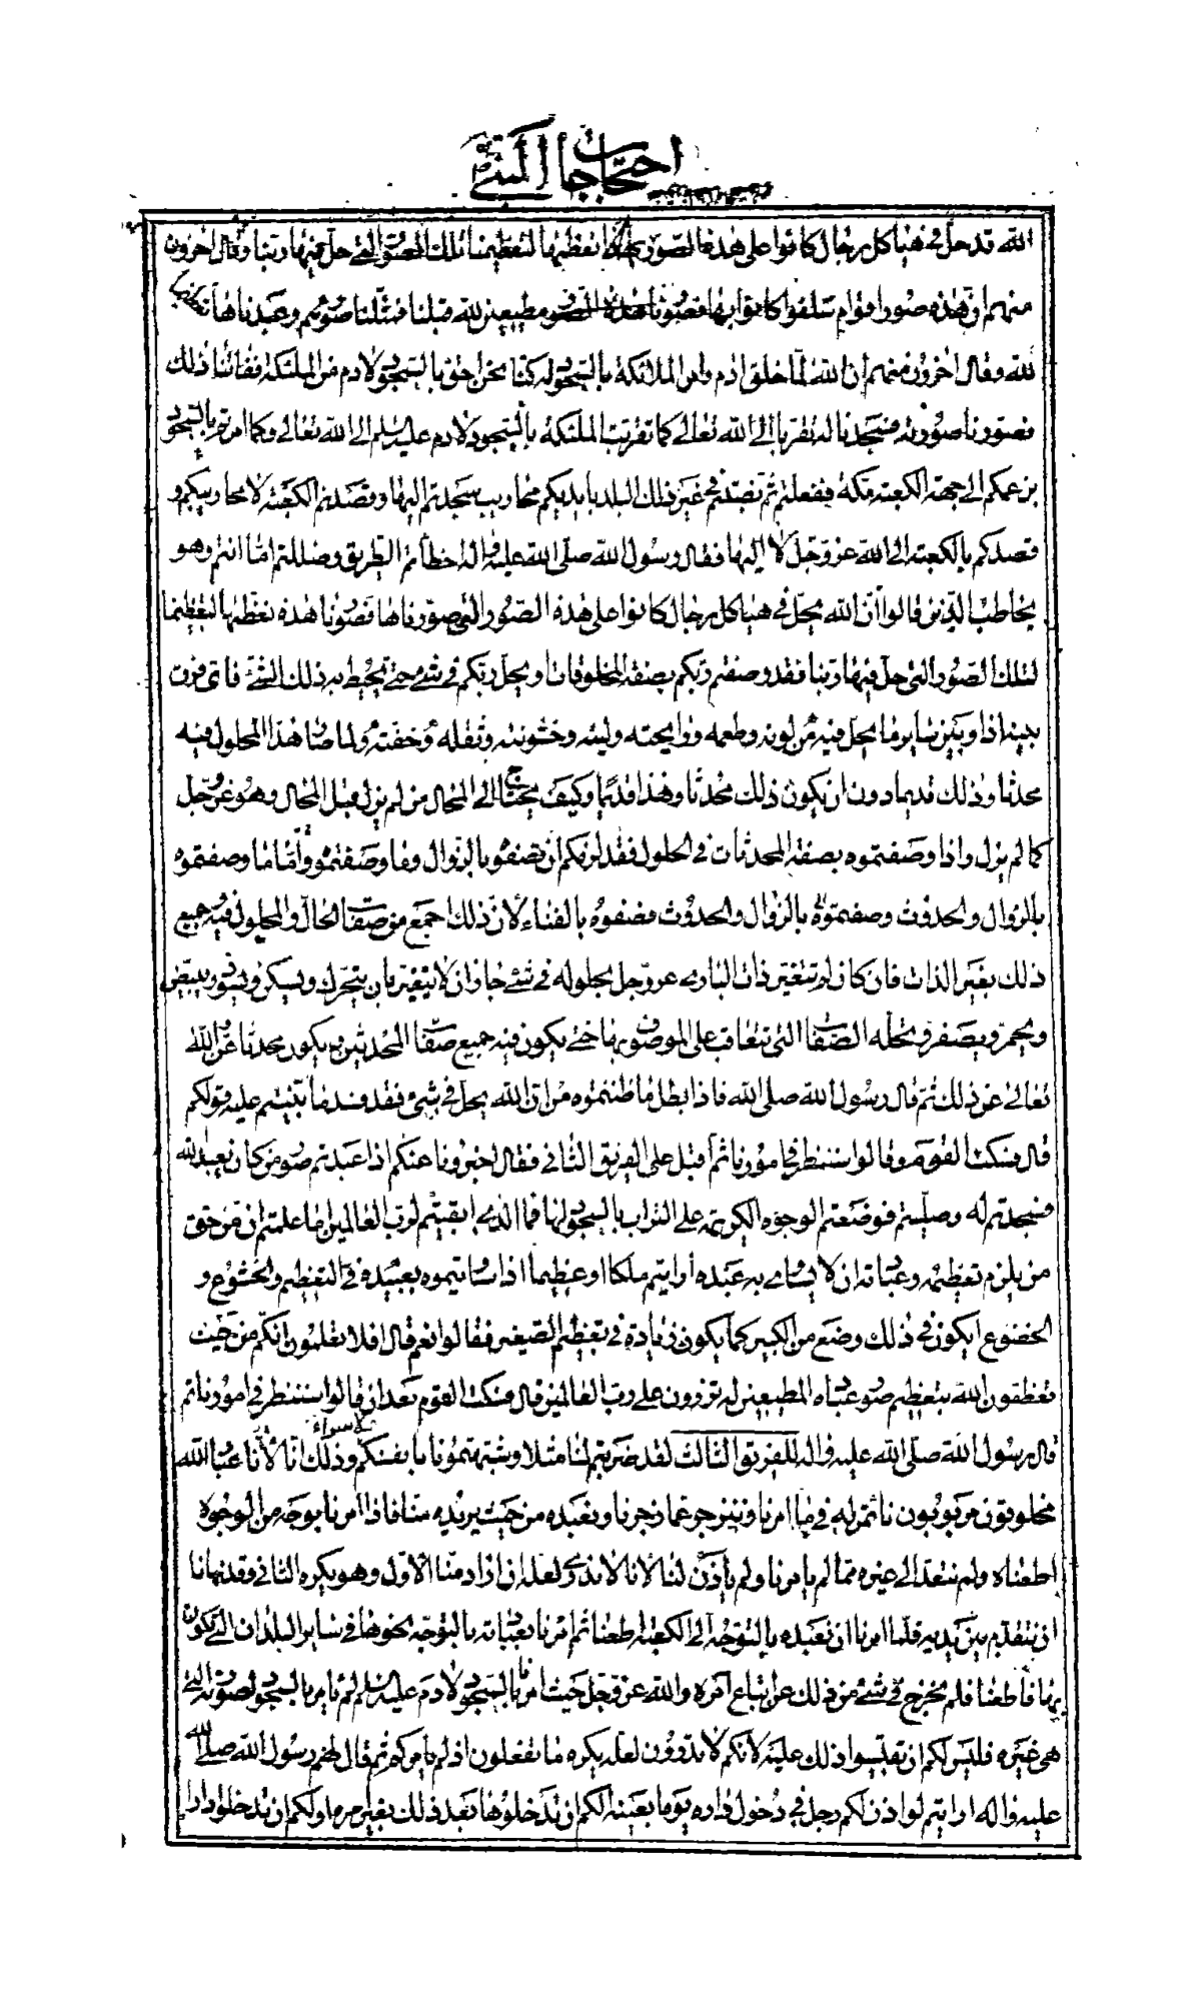 احتجاجات النبي ص
الله قد حل في هياكل رجال كانوا على هذه الصور نعظمها لتعظيمنا تلك الصور التي حل فيها ربنا وقال اخرون
منهم ان هذه صور اقوام سلفوا كانوا بها مطيعين لله قبلنا فمثلنا صورهم وعبدناها تعظيما
لله وقال اخرون منهم ان الله لما خلق ادم وامر الملائكة بالسجود له كنا نحن احق بالسجود لادم من الملئكة ففاتنا ذلك
فصورنا صورته فسجدنا له تقربا الى الله تعالى كما تقربت الملئكة بالسجود لادم عليه السلم الى الله تعالى وكما امرتم بالسجود
بزعمكم الى جهة الكعبة بمكة ففعلتم ثم نصبتم في غير ذلك البلد بايديكم محاريب سجدتم اليها وقصدتم الكعبة لا محاريبكم و
قصدكم بالكعبة الى الله عز وجل لا اليها فقال رسول الله صلى الله عليه واله اخطأتم الطريق وضللتم اما انتم وهو
يخاطب الذين قالوا ان الله يحل في هياكل رجال كانوا على هذه الصور التي صورناها فصورنا هذه نعظمها لتعظيمنا
لتلك الصور التي حل فيها ربنا فقد وصفتم ربكم بصفة المخلوقات او يحل ربكم في شئ حتى يحيط به ذلك الشئ فاى فرق
بينه اذا وبين ساير ما يحل فيه من لونه وطعمه ورايحته ولينه وخشونته وثقله وخفته ولم صار هذا المحلول فيه
محدثا وذلك قديما دون ان يكون ذلك محدثا وهذا قديما وكيف يحتاج الى المحال من لم يزل قبل المحال وهو عز وجل
كما لم يزل واذا وصفتموه بصفة المحدثات في الحلول فقد لزمكم ان تصفوه بالزوال وما وصفتموه
بالزوال والحدوث وصفتموه بالزوال والحدوث فصفوه بالفناء لان ذلك اجمع من صفات الحال والمحلول فيه وجميع
ذلك يغير الذات فان كان لم يتغير ذات البارى عز وجل بحلوله في شئ جاز ان لا يتغير بان يتحرك ويسكن ويسود ويبيض
ويحمر ويصفر وتحله الصفات التي تتعاقب على الموصوف بها حتى يكون فيه جميع صفات المحدثين ويكون محدثا عز الله
تعالى عن ذلك ثم قال رسول الله صلى الله فاذا بطل ما ظننتموه من ان الله يحل في شئ فقد فسد ما بنيتم عليه قولكم
قال فسكت القوم وقالوا سننظر في امورنا ثم اقبل على الفريق الثاني فقال اخبرونا عنكم اذا عبدتم صور من كان يعبد الله
فسجدتم له وصليتم فوضعتم الوجوه الكريمة على التراب بالسجود لها فما الذى ابقيتم لرب العالمين اما علمتم ان من حق
من يلزم تعظيمه وعبادته ان لا يساوى به عبده أرايتم ملكا او عظيما اذا ساويتموه بعبيده في التعظيم والخشوع و
الخضوع ايكون في ذلك وضع من الكبير كما يكون زيادة في تعظيم الصغير فقالوا نعم قال افلا تعلمون انكم من حيث
تعظمون الله بتعظيم صور عباده المطيعين له تزرون على رب العالمين قال فسكت القوم بعد ان قالوا سننظر في امورنا ثم
قال رسول الله صلى الله عليه واله للفريق الثالث لقد ضربتم لنا مثلا وشبهتمونا بانفسكم ولا سواء وذلك انا عباد الله
مخلوقون مربوبون ناتمر له فيما امرنا وننزجر عما زجرنا ونعبده من حيث يريده منا فاذا امرنا بوجه من الوجوه
اطعناه ولم نتعد الى غيره مما لم يامرنا ولم ياذن لنا لانا لا ندرى لعله ان اراد منا الاول وهو يكره الثاني وقد نهانا
ان نتقدم بين يديه فلما امرنا ان نعبده بالتوجه الى الكعبة اطعنا ثم امرنا بعبادته بالتوجه نحوها في ساير البلدان التي نكون
بها فاطعنا فلم نخرج في شئ من ذلك عن اتباع امره والله عز وجل حيث امرنا بالسجود لادم عليه السلم لم يامر بالسجود لصورته التي
هى غيره فليس لكم ان تقيسوا ذلك عليه لانكم لا تدرون لعله يكره ما تفعلون اذ لم يامركم ثم قال لهم رسول الله صلى الله
عليه واله ارايتم لو اذن لكم رجل في دخول داره يوما بعينه الكم ان تدخلوها بعد ذلك بغير امره او لكم ان تدخلوا دارا